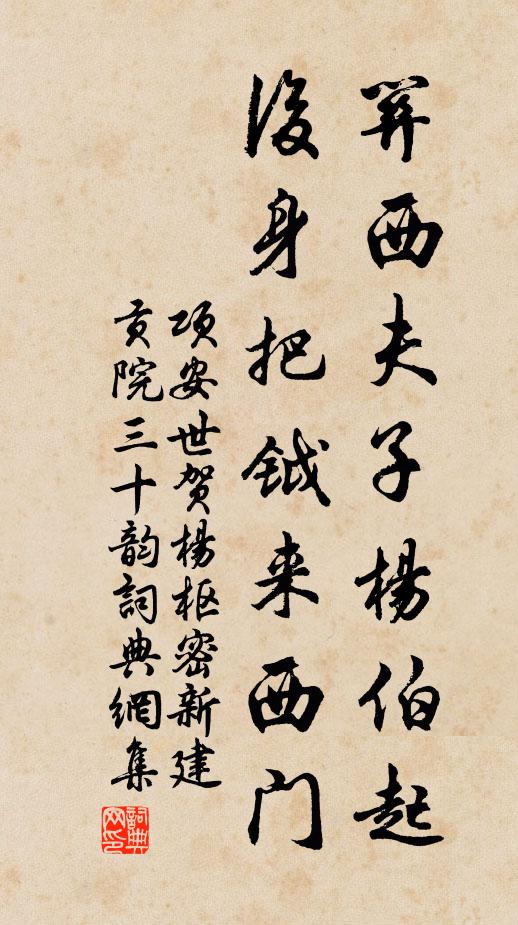 关西夫子楊伯起
後身把鉞来西门
项安世贺楊枢密新建
贡院三十韵詞典網集
詞典网印